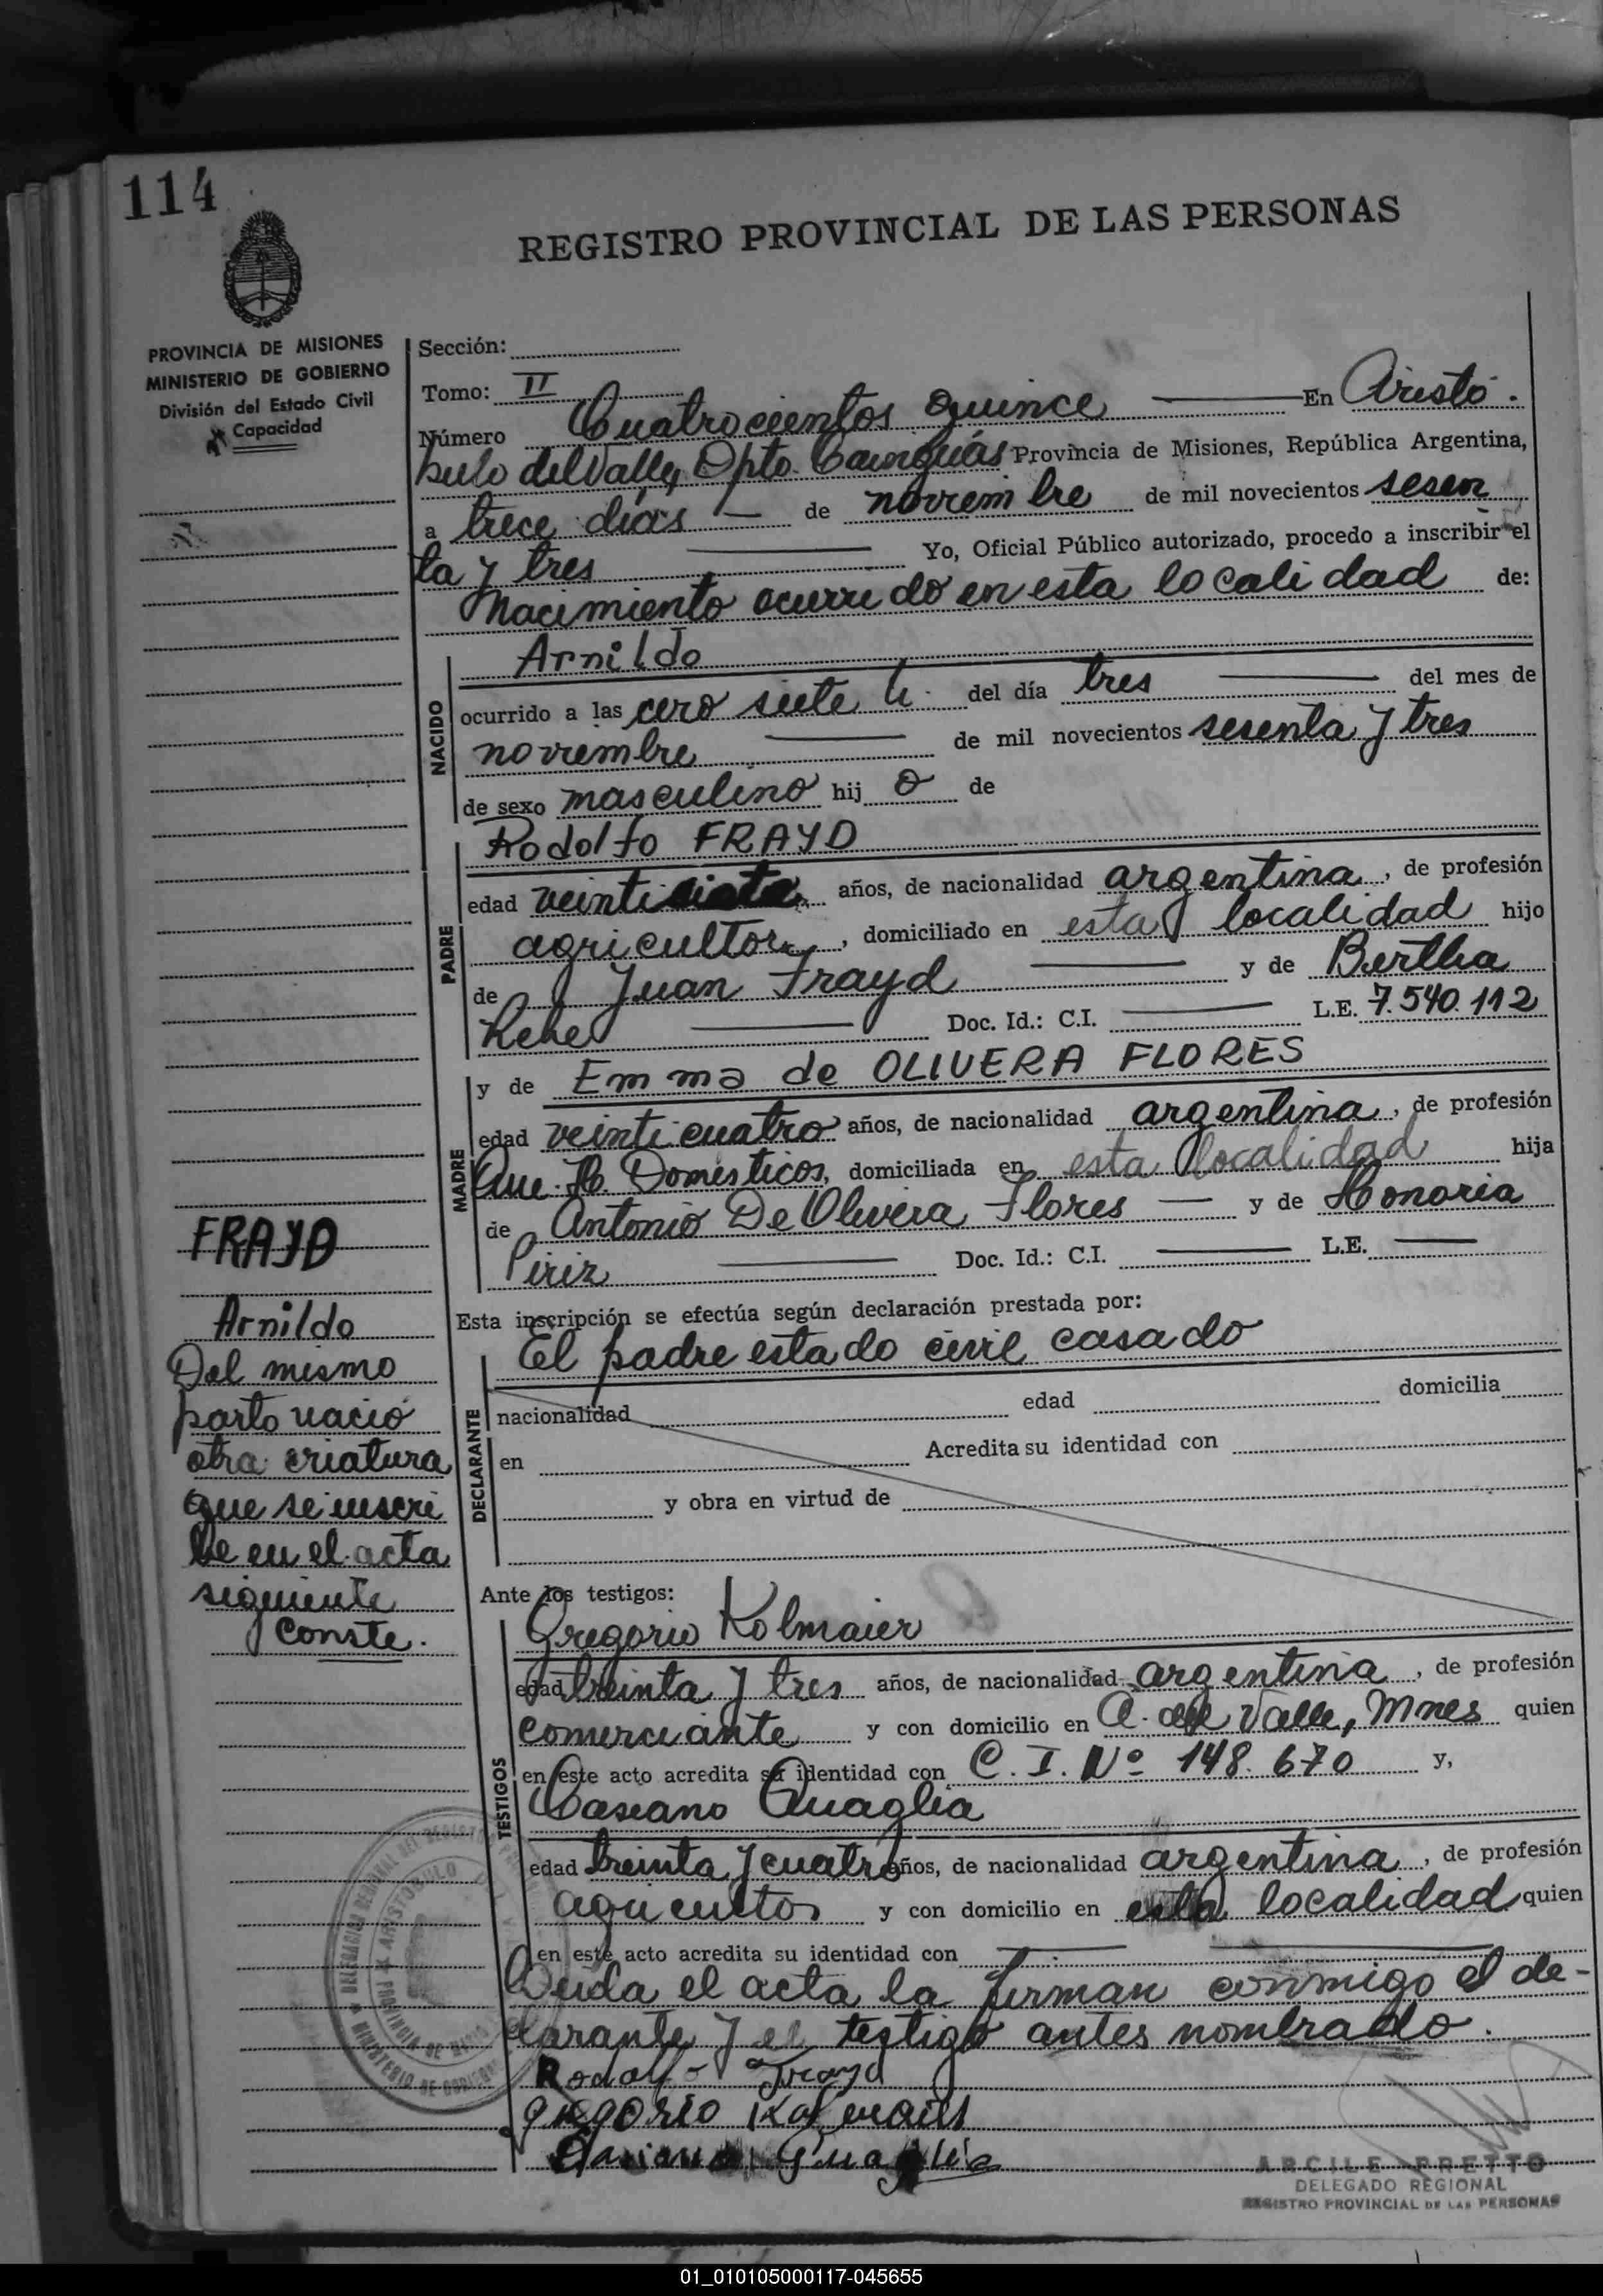 114
REGISTRO PROVINCIAL DE LAS PERSONAS
PROVINCIA DE MISIONES
MINISTERIO DE GOBIERNO
División del Estado Civil
y Capacidad
Sección:
Tomo: II
Número Cuatrocientos quince En Aristó.
bulo del Valle, Dpto. Cainguás Provincia de Misiones, República Argentina,
a trece días de noviembre de mil novecientos sesen
ta y tres Yo, Oficial Público autorizado, procedo a inscribir el
Nacimiento ocurrido en esta localidad de:
NACIDO
Arnildo
ocurrido a las cero siete h. del día tres del mes de
noviembre de mil novecientos sesenta y tres
de sexo masculino hij o de
PADRE
Rodolfo FRAYD
edad veintisiete años, de nacionalidad argentina, de profesión
agricultor, domiciliado en esta localidad hijo
de Juan Frayd y de Bertha
Doc. Id.: C.I. L.E. 7.540.112
MADRE
y de Emma de OLIVERA FLORES
edad veinticuatro años, de nacionalidad argentina, de profesión
Que. H. Domésticos, domiciliada en esta localidad hija
de Antonio De Olivera Flores y de Honoria
Piriz Doc. Id.: C.I. L.E.
Esta inscripción se efectúa según declaración prestada por:
DECLARANTE
El padre estado civil casado
nacionalidad edad domicilia
en Acredita su identidad con
y obra en virtud de
Ante los testigos:
TESTIGOS
Gregorio Kolmaier
edad treinta y tres años, de nacionalidad argentina, de profesión
comerciante y con domicilio en A. del Valle, Mnes quien
en este acto acredita su identidad con C. I. Nº 148.670 y,
Casiano Quaglia
edad treinta y cuatro años, de nacionalidad argentina, de profesión
agricultor y con domicilio en esta localidad quien
en este acto acredita su identidad con
Leida el acta la firman conmigo el de-
clarante y el testigo antes nombrado.
Rodolfo Frayd
Gregorio Kolmaier
FRAYD
Arnildo
Del mismo
parto nació
otra criatura
que se inscri
be en el acta
siguiente
Conste.
ARCILE PRETTO
DELEGADO REGIONAL
REGISTRO PROVINCIAL DE LAS PERSONAS
01_010105000117-045655